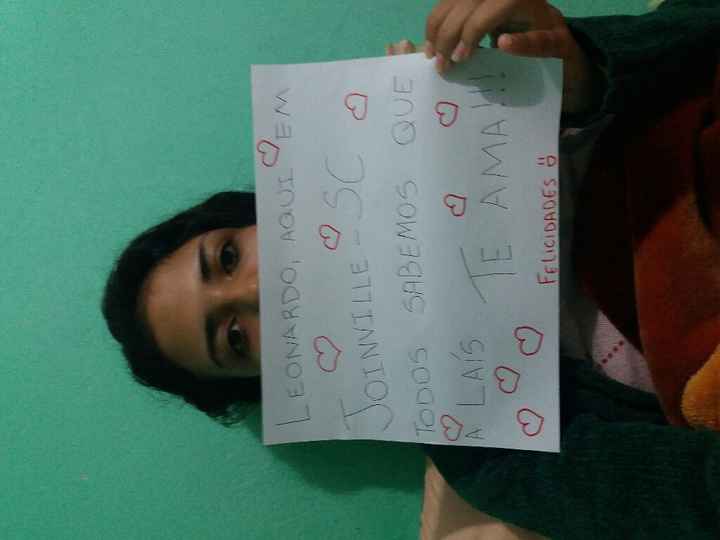 LEONARDO, AQUI EM
JOINVILLE - SC
TODOS SABEMOS QUE
A LAÍS TE AMA!!!
FELICIDADES :)